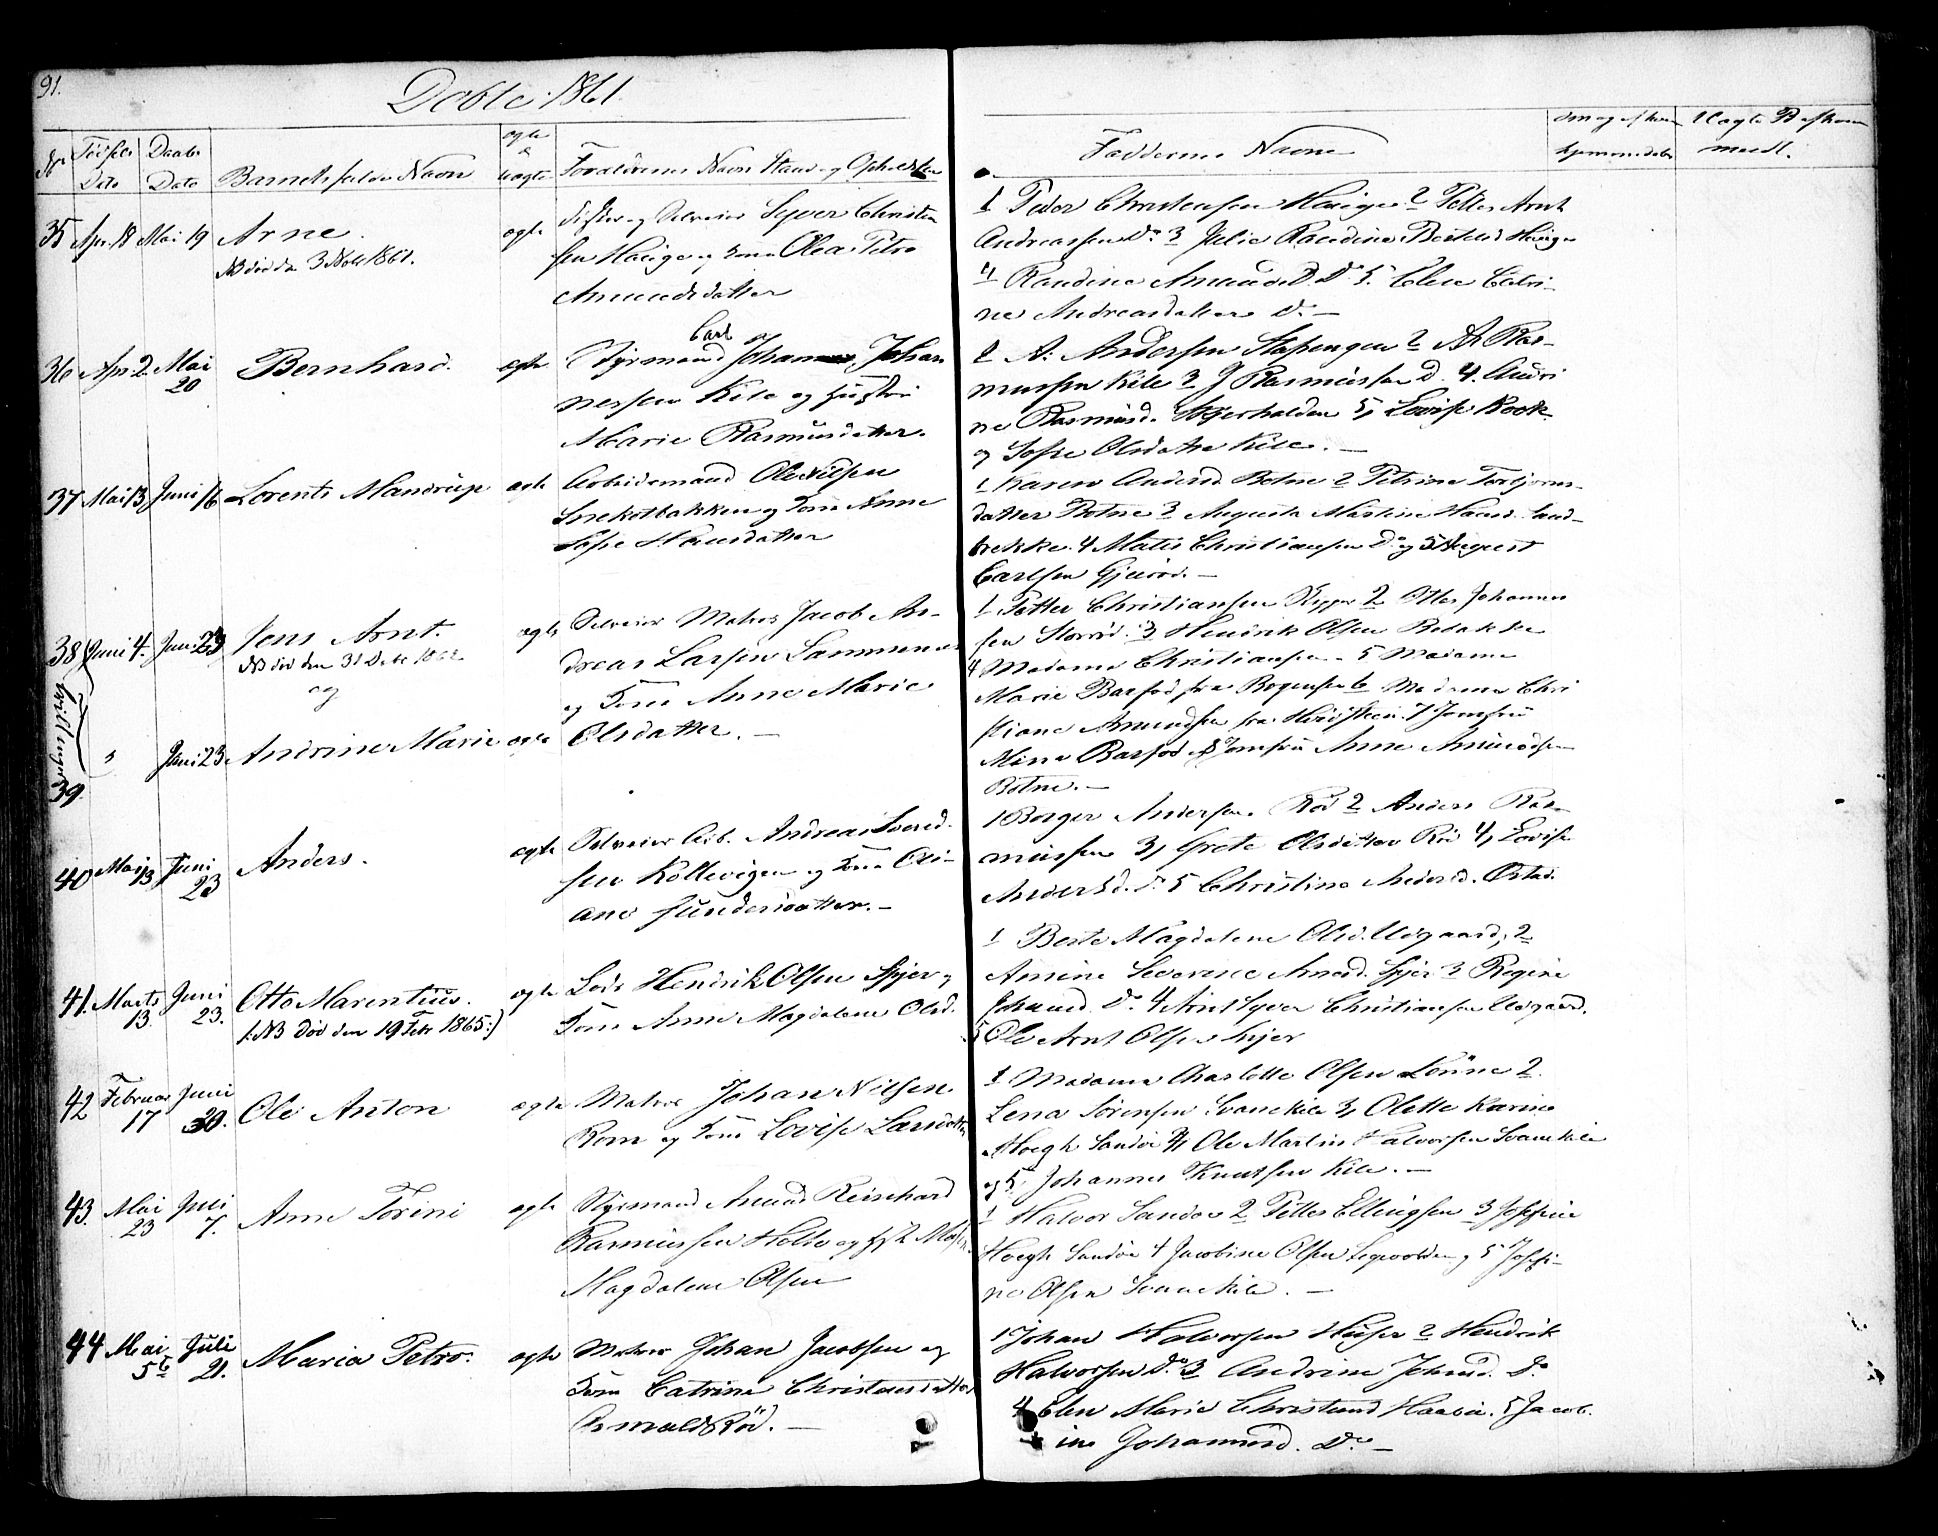 91.
Døbte 1861.
No Fødsels Dato Daabs Dato Barnets fulde Navn ægte el uægte Forældrenes Navn Stand og Opholdsted
Faddernes Navne
35 Apr. 18 Mai 19 Arne.
NB død d. 3 Novbr 1861.
ægte
Fisker og Selveier Syver Christen
sen Hauge og Kone Olea Petro
Amundsdatter
1 Peder Christensen Hauge 2 Petter Arnt
Andreassen Do 3 Julie Randine Bertelsd Hauge
4 Randine Amunds D. Do 5. Elen Catri-
ne Andreasdatter Do. —
36 Apr 2 Mai 20 Bernhard. ægte
Carl
Styrmand Johannes Johan
nessen Kile og Hustru
Marie Rasmusdatter.
1 A. Andersen 2 A. Ras-
mussen Kile 3 J Rasmussen D. 4. Andri
ne Rasmusd. Skjerhalden 5, Lovise Kook
og Sofie Olsdatter Kile. —
37 Mai 13 Juni 16 Lorents Mandrup ægte
Arbeidsmand Ole Nilsen
Snekotbakken og Kone Anne
Sofie Hansdatter
1 Karen Andersd Botne 2 Petrine Torbjorns-
datter Botne 3 Augusta Mastine Hansd. Sand-
brekke. 4 Matis Christiansen Do og 5 August
Carlsen —
38 Juni 4 Juni 23 Jens Arnt.
NB død den 31 Debr 1862
og
ægte
Selveier Matros Jacob An-
dreas Larsen
og Kone Anne Marie
Olsdatter. —
1 Petter Christiansen 2 Otter Johannes
sen Storrød. 3 Hendrik Olsen Botakker
4 Madame Christiansen 5 Madame
Marie Barfod fra 6 Madame Chri
stiane Amundsen fra Hvidsteen 7 Jomfru
Mina Barfod 8 Jomfru Anne Amundsen
Botne. —
tvillinger
39
" Juni 23 Andrine Marie ægte
40 Mai 13 Juni 23 Anders. ægte
Selveier Arb. Andreas Svend-
sen Kollevigen og Kone Oli-
ane Gundersdatter. —
1 Borger Andersen Rød 2 Anders Ras-
mussen 3, Grete Olsdatter Rød 4, Lovise
Andersd. Do 5 Christine Andersd. Ostad.
41. Marts 13. Juni 23. Otto Marentius.
(:NB død den 19 Febr 1865:)
ægte
Lods Hendrik Olsen Spjer og
Kone Anne Magdalene Olsd.
1 Berte Magdalene Olsd. Udgaard, 2
Amine Severine Arnesd. Spjer 3 Regine
Johansd. Do 4 Arnt Syver Christiansen Udgaard.
5 Ole Arnt Olsen Spjer
42 Februar 17 Juni 30. Ole Anton ægte
Matros Johan Nilsen
Rom og Kone Lovise Larsdatter
1 Madame Charlotte Olsen Lønne 2.
Lena Sørensen Svanekile 3, Olette Karine
Høegh Sandø 4, Ole Martin Halvorsen Svanekile
og 5. Johannes Knutsen Kile. —
43. Mai 23 Juli 7. Anne Torine ægte
Styrmand Amund Reinhard
Rasmussen Holte og Hustr
Magdalene Olsen
1 Halvor Sandø 2 Petter Ellingsen 3 Josefine
Høegh Sandøe 4 Jacobine Olsen og 5 Josefi-
ne Olsen Svanekile. —
44 Mai 5te Juli 21. Maria Petro. ægte
Matros Johan Jacobsen og
Kone Catrine Christensdatter
Asmaldrød. —
1 Johan Halvorsen Huser 2 Hendrik
Halvorsen Do 3 Andrine Johansd. Do
4 Elen Marie Christensd 5 Jacob.
ine Johannesd. Do —